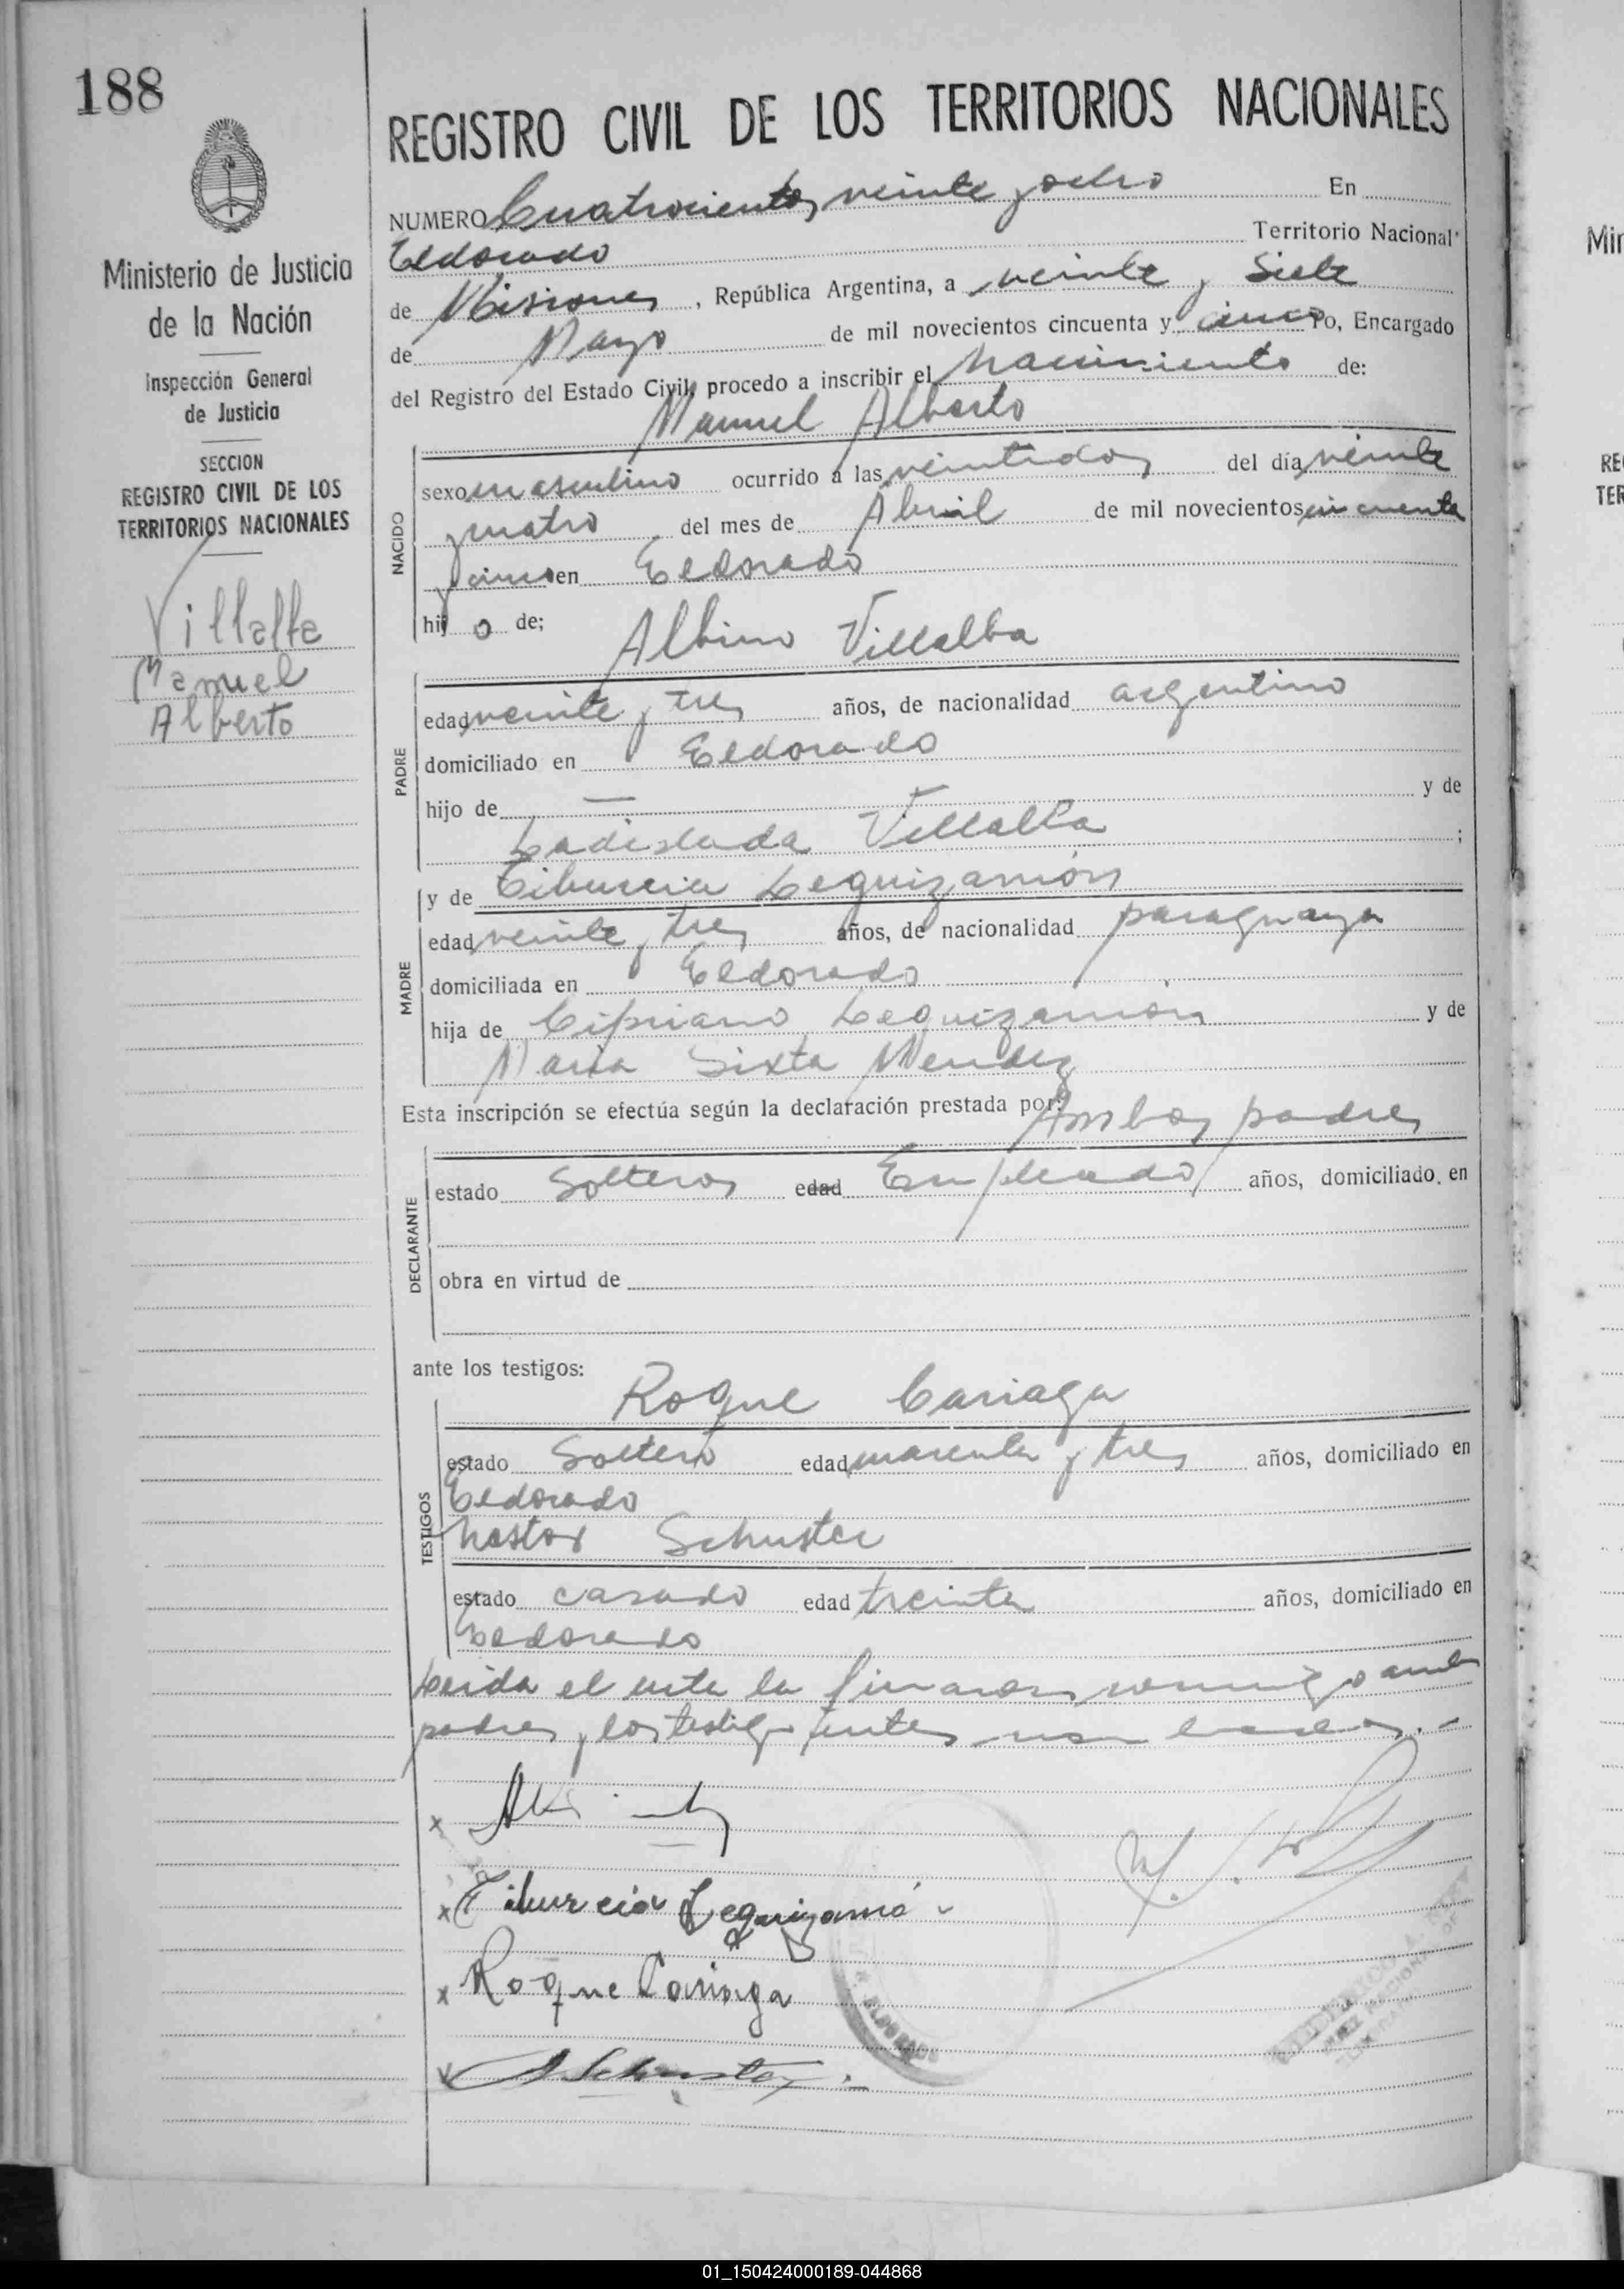 188
REGISTRO CIVIL DE LOS TERRITORIOS NACIONALES
Ministerio de Justicia
de la Nación
Inspección General
de Justicia
SECCION
REGISTRO CIVIL DE LOS
TERRITORIOS NACIONALES
Villalba
Manuel
Alberto
NUMERO Cuatrocientos veinte y ocho En
Eldorado Territorio Nacional
de Misiones, República Argentina, a veinte y Siete
de Mayo de mil novecientos cincuenta y cinco Yo, Encargado
del Registro del Estado Civil, procedo a inscribir el Nacimiento de:
Manuel Alberto
NACIDO
sexo masculino ocurrido a las veintidos del día veinte
y cuatro del mes de Abril de mil novecientos cincuenta
y cinco en Eldorado
hijo de;
Albino Villalba
PADRE
edad veinte y tres años, de nacionalidad argentino
domiciliado en Eldorado
hijo de — y de
Ladislada Villalba ;
y de Tiburcia Leguizamón
MADRE
edad veinte y tres años, de nacionalidad paraguaya
domiciliada en Eldorado
hija de Cipriano Leguizamón y de
Maria Sixta Mendez
Esta inscripción se efectúa según la declaración prestada por: Ambos padres
DECLARANTE
estado Solteros edad Empleado años, domiciliado en
obra en virtud de
ante los testigos:
Roque Cariaga
TESTIGOS
estado Soltero edad cuarenta y tres años, domiciliado en
Eldorado
Nestor Schuster
estado casado edad treinta años, domiciliado en
Eldorado
Leida el acta la firmaron conmigo ambos
padres y los testigos
Tiburcia Leguizamó
Roque Cariaga
N Schuster
ELDORADO
Min
RE
TER
01_150424000189-044868